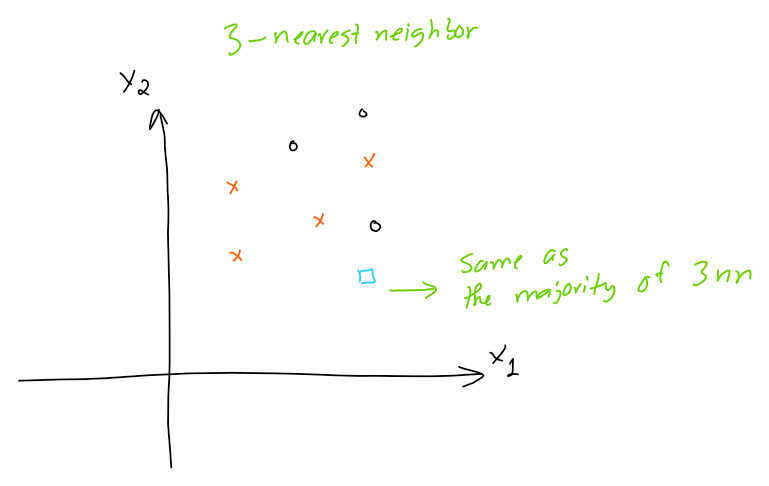 3-nearest neighbor
x2
same as
the majority of 3nn
x1